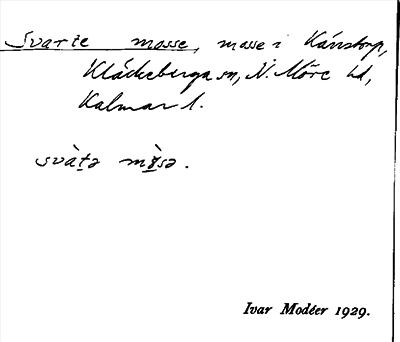 Svarte mosse, mosse i Kåristorp,
Kläckeberga sn, N. Möre hd,
Kalmar l.
svàtə mòsə.
Ivar Modéer 1929.